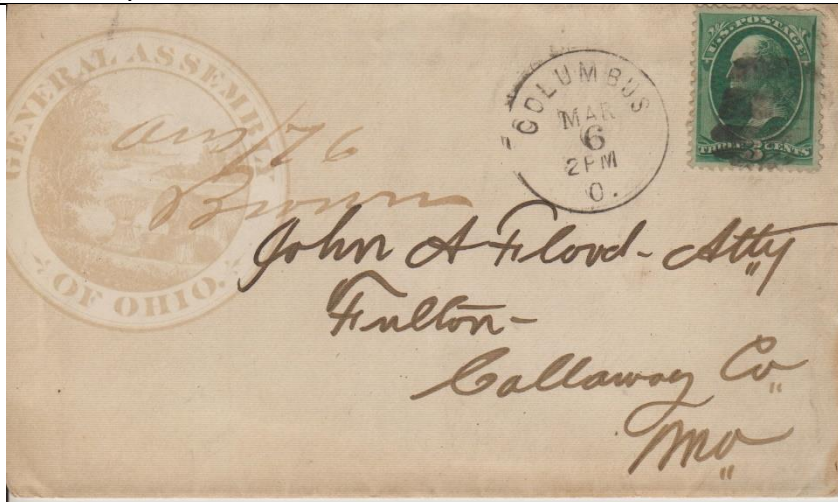 GENERAL ASSEMBLY
OF OHIO.
COLUMBUS
MAR
6
2PM
O.
U.S. POSTAGE
THREE 3 CENTS
Brown
John A Flood - Atty
Fulton -
Callaway Co
Mo